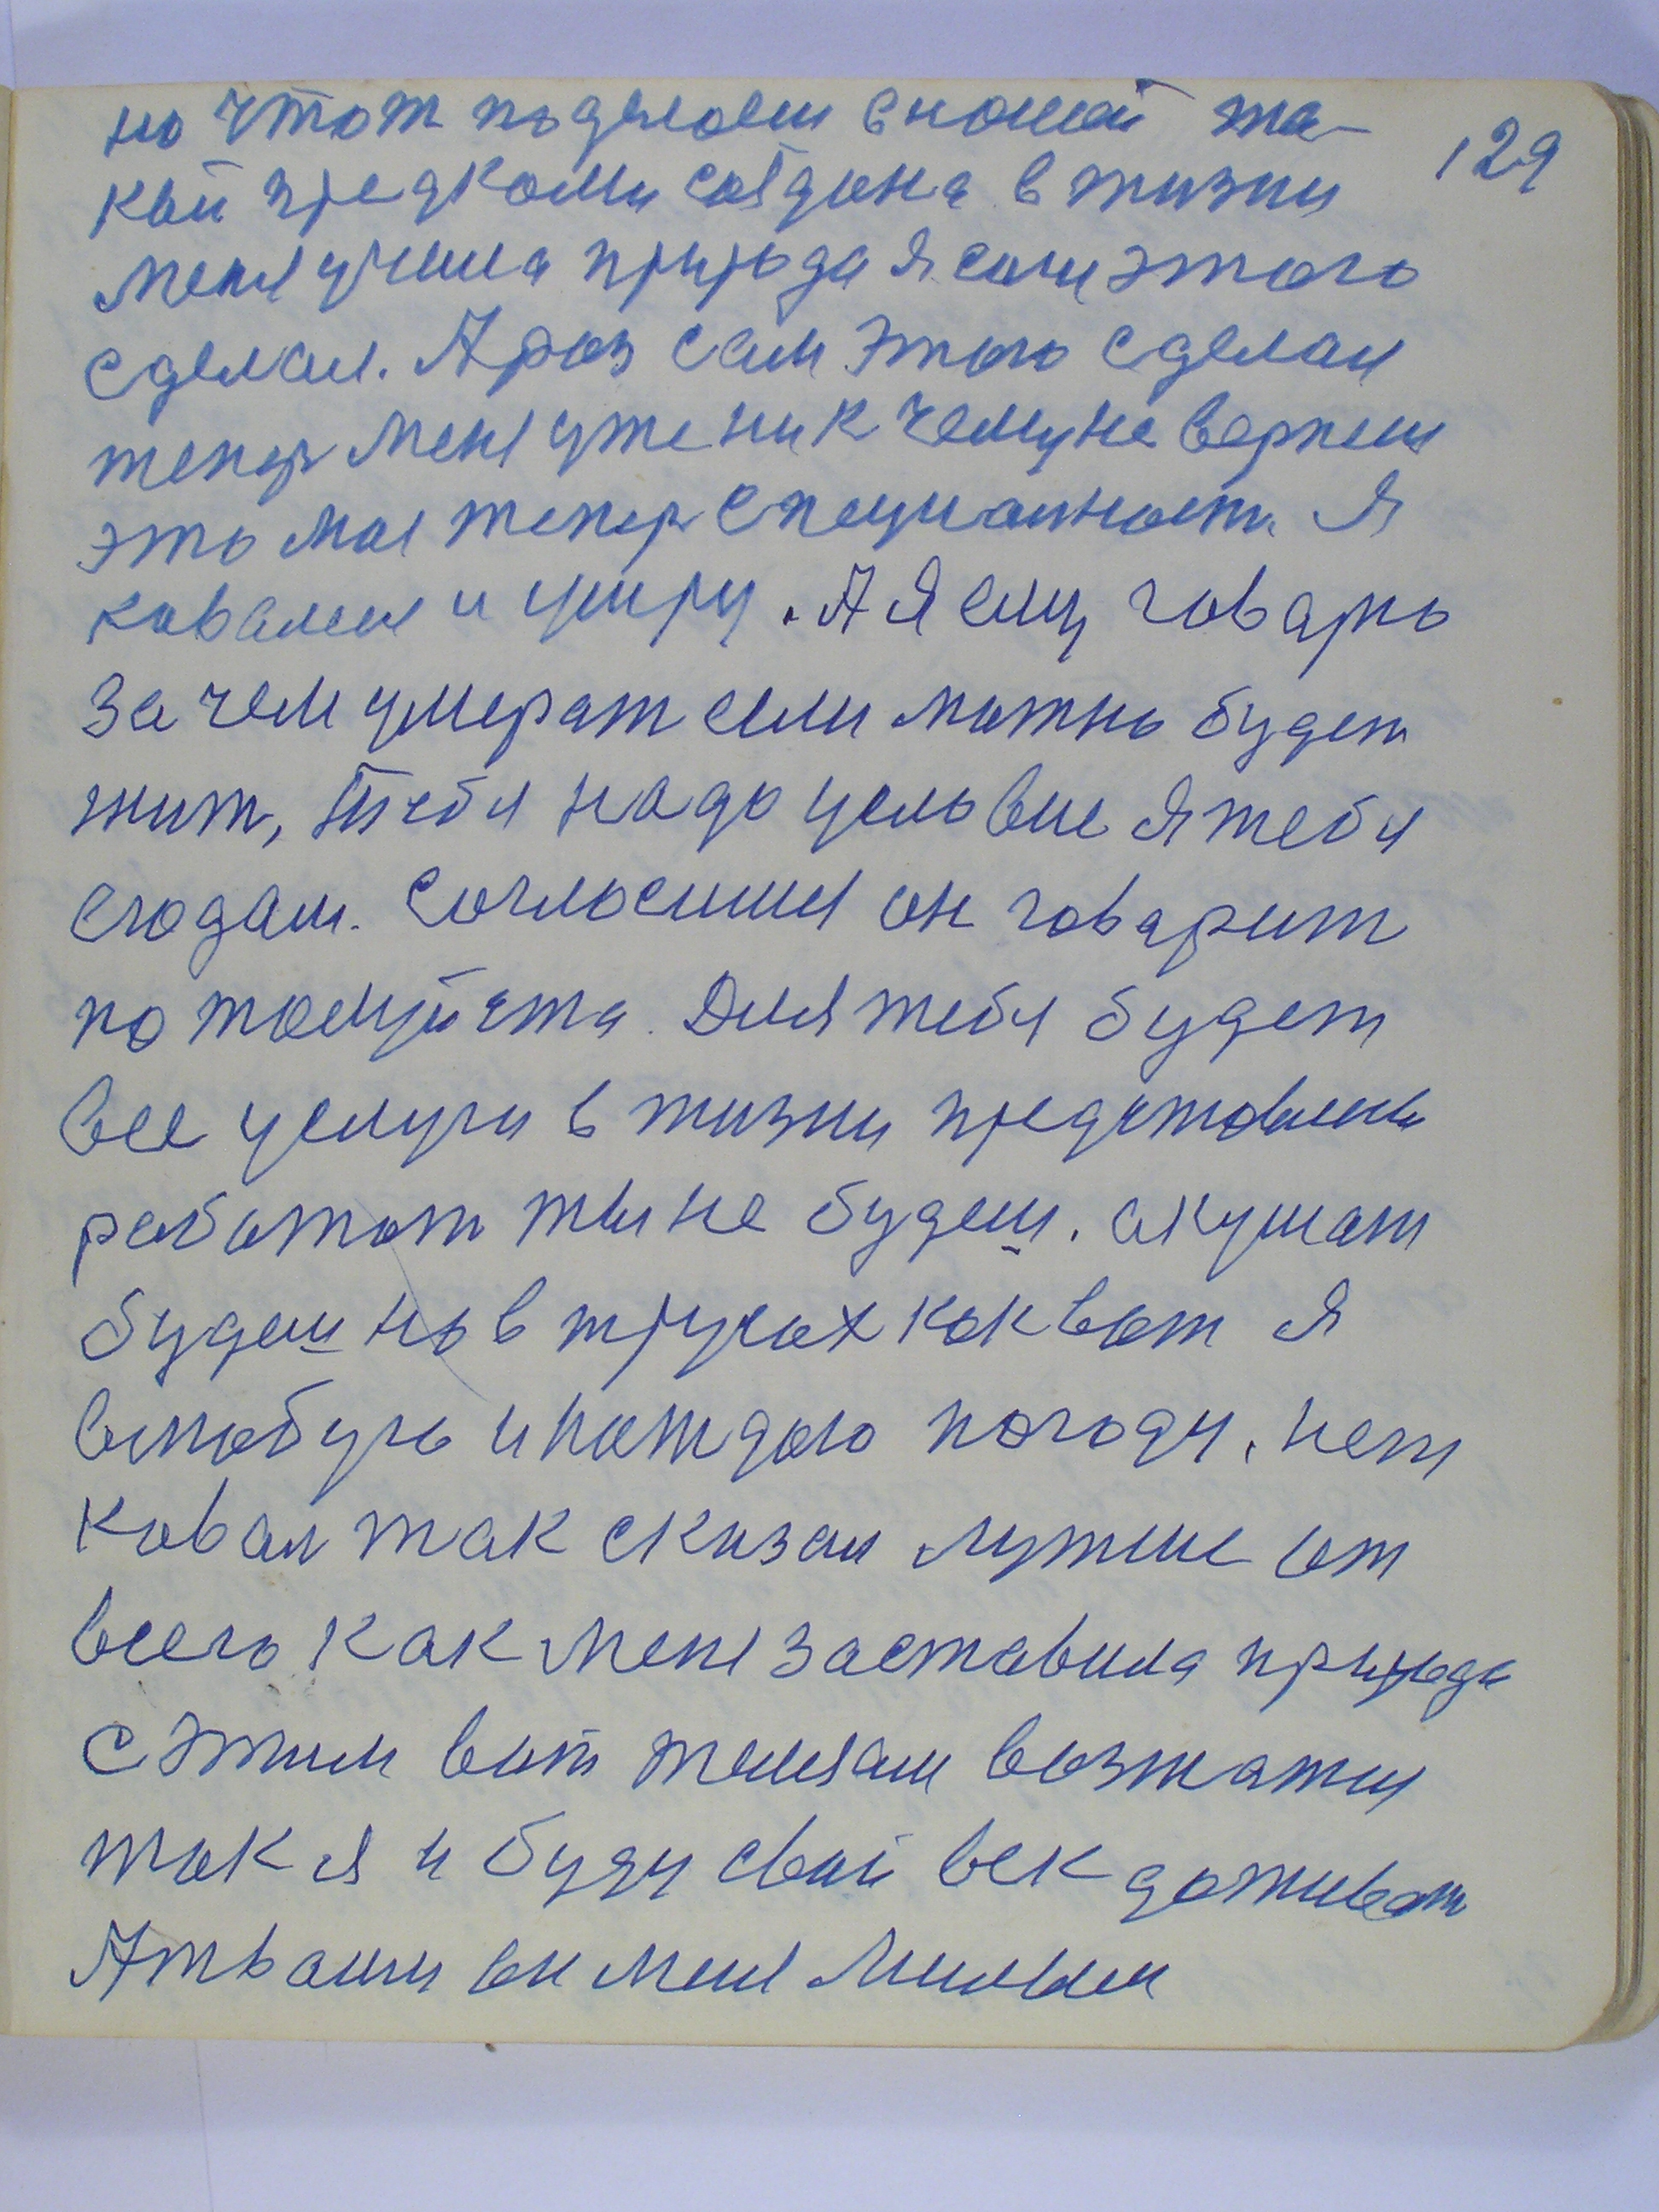 но чтож поделаеш сношей та-
129
кой предками создана в жизни
меня учила природа я сам этого
сделал. А раз сам этого сделал
тепер меня уже ник чему не вернеш
это моя тепер специалност. Я
ковалем и умру. А я ему говарю
За чем умерат если можно будет
жит, Тебя надо условие я тебя
создам. Согласишся он говарит
по жалуйста. Для тебя будет
все услуги в жизни представлены
работат ты не будеш. а кушат
будеш но в трусах как вот я
в любую и каждою погоду. нет
ковал так сказал лутше от
всего как меня заставила природа
с этим вот железам возжатся
так я и буду свой век доживат
А твоими он меня